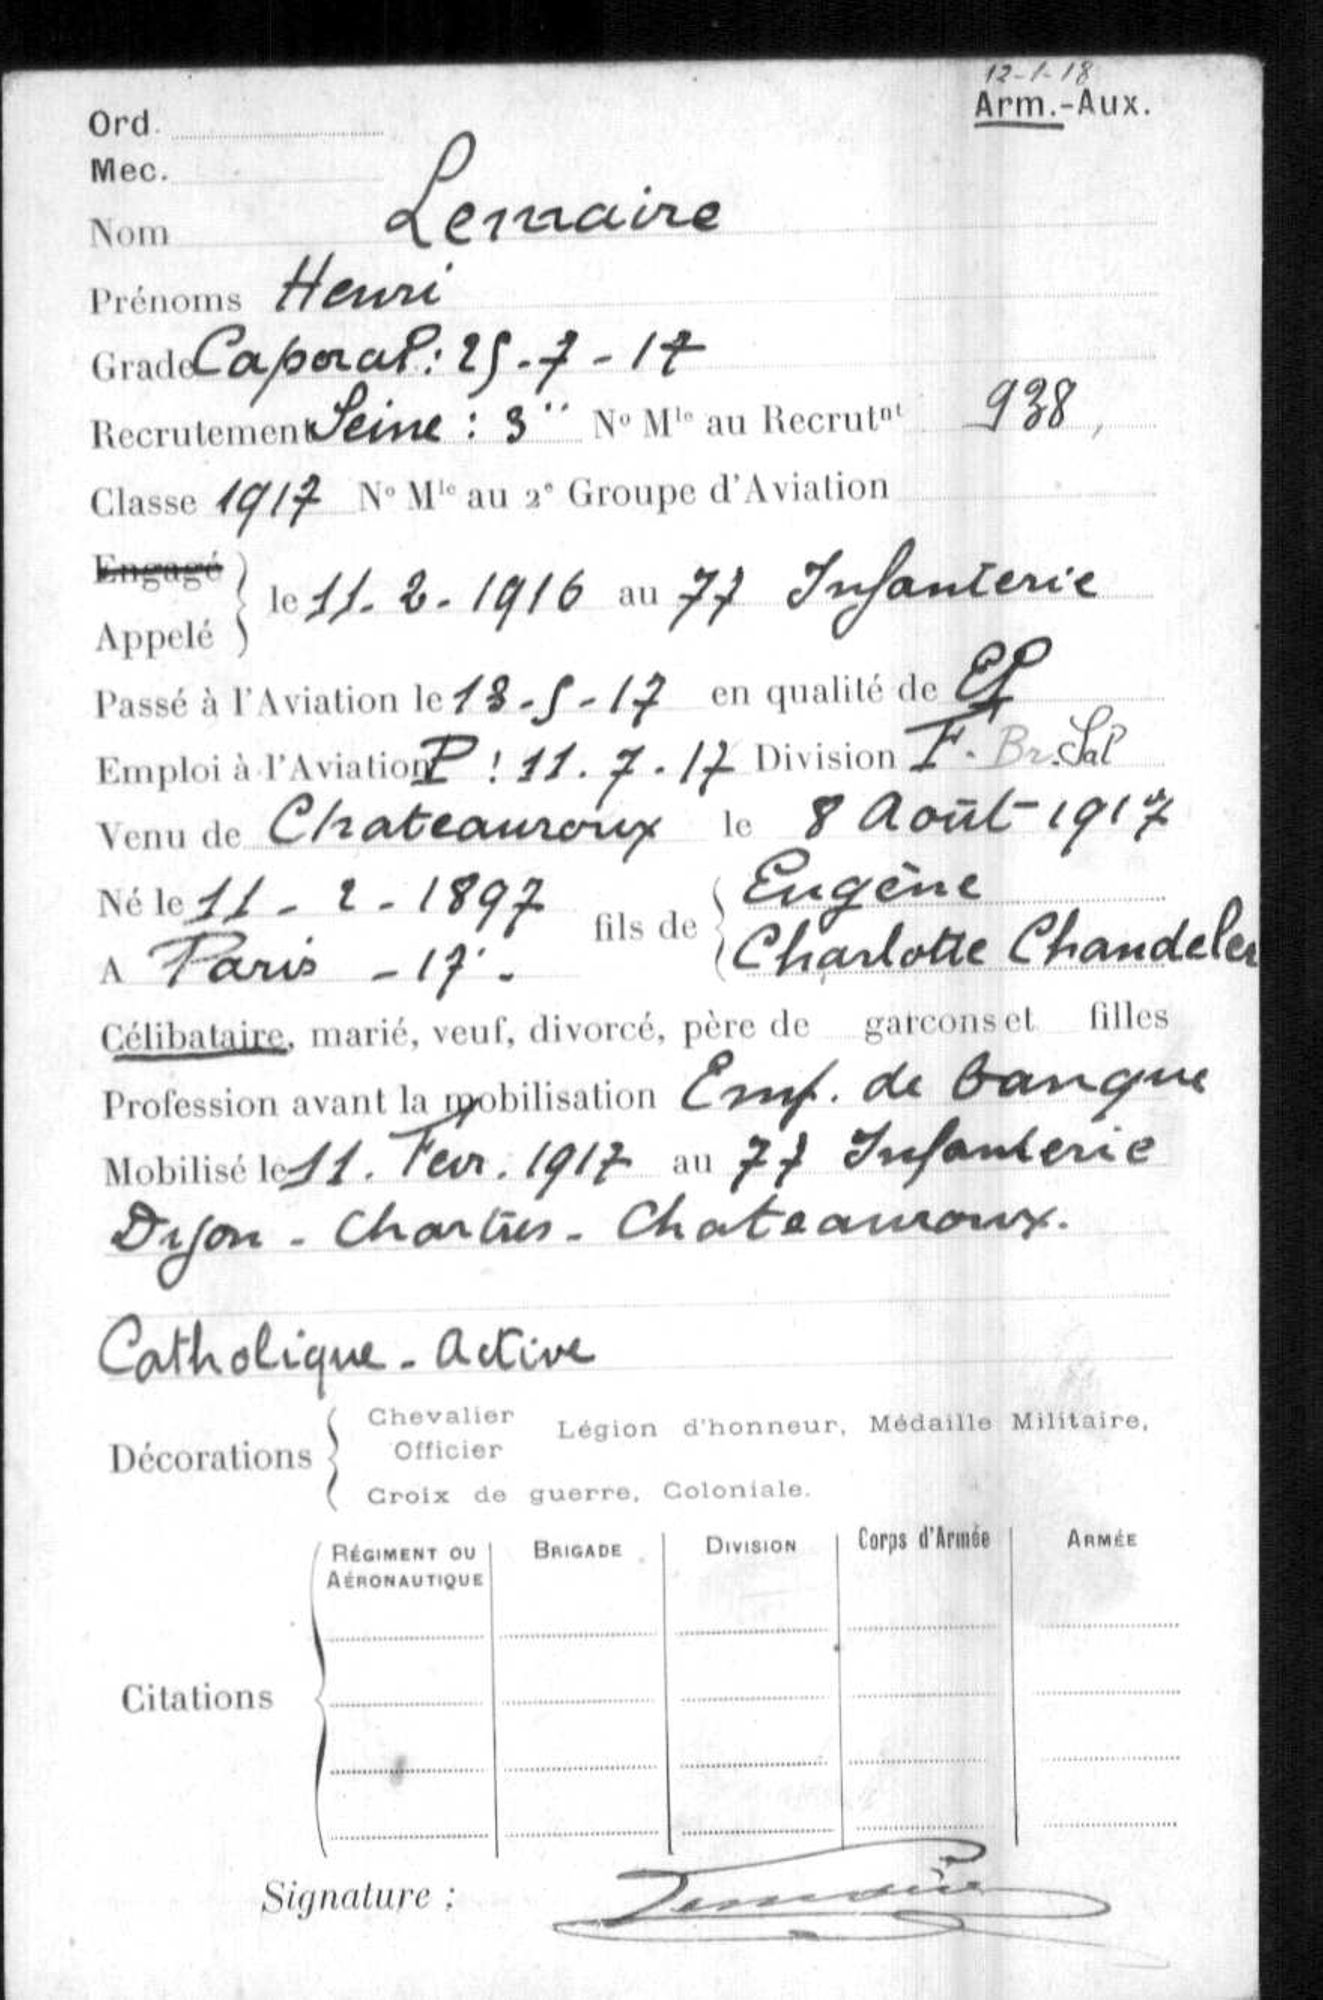 12-1-18
Arm.-Aux.
Ord.
Mec.
Nom Lemaire
Prénoms Henri
Grade Caporal : 25-7-17
Recrutement Seine : 3" No Mle au Recrutnt 938,
Classe 1917 No Mle au 2e Groupe d'Aviation
Engagé
Appelé } le 11-2-1916 au 77 Infanterie
Passé à l'Aviation le 13-5-17 en qualité de EP
Emploi à l'Aviation P : 11.7.17 Division F. Br. Sal
Venu de Chateauroux le 8 Août 1917
Né le 11-2-1897 fils de { Eugène
A Paris - 17. Charlotte Chandeler
Célibataire, marié, veuf, divorcé, père de garcons et filles
Profession avant la mobilisation Emp. de banque
Mobilisé le 11. Fevr. 1917 au 77 Infanterie
Dijon - Chartres - Chateauroux.
Catholique - Active
Décorations { Chevalier Légion d'honneur, Médaille Militaire,
Officier
Croix de guerre, Coloniale.
Citations { RÉGIMENT OU AÉRONAUTIQUE BRIGADE DIVISION Corps d'Armée ARMÉE
Signature : Lemaire